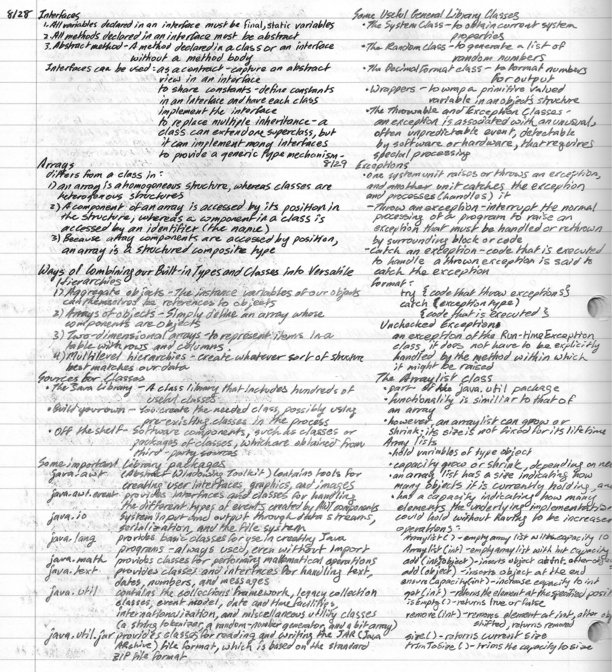 8/28 Interfaces
1. All variables declared in an interface must be final, static variables
2. All methods declared in an interface must be abstract
3. Abstract method - A method declared in a class or an interface
without a method body
Interfaces can be used: as a contract - capture an abstract
view in an interface
to share constants - define constants
in an interface and have each class
implement the interface
to replace multiple inheritance - a
class can extend one superclass, but
it can implement many interfaces
to provide a generic type mechanism -
Arrays
differs from a class in:
1) an array is a homogeneous structure, whereas classes are
heterogenous structures
2) A component of an array is accessed by its position in
the structure, whereas a component in a class is
accessed by an identifier (the name)
3) Because array components are accessed by position,
an array is a structured composite type
Ways of Combining our Built-in Types and Classes into Versatile
Hierarchies
1) Aggregate objects - The instance variables of our objects
can themselves be references to objects
2) Arrays of objects - Simply define an array whose
components are objects
3) Two-dimensional arrays - to represent items in a
table with rows and columns
4) Multilevel hierarchies - create whatever sort of structure
best matches our data
Sources for Classes
• The Java Library - A class library that includes hundreds of
useful classes
• Build your own - You create the needed class, possibly using
pre-existing classes in the process
• Off the shelf - Software components, such as classes or
packages of classes, which are obtained from
third-party sources
Some important Library packages
java.awt (Abstract Windowing Toolkit) Contains tools for
creating user interfaces, graphics, and images
java.awt.event provides interfaces and classes for handling
the different types of events created by AWT components
java.io System input and output through data streams,
serialization, and the file system
java.lang provides basic classes for use in creating Java
programs - always used, even without import
java.math provides classes for performing mathematical operations
java.text provides classes and interfaces for handling text,
dates, numbers, and messages
java.util contains the collections framework, legacy collection
classes, event model, date and time facilities,
internationalization, and miscellaneous utility classes
(a string tokenizer, a random-number generator, and a bit array)
java.util.jar provides classes for reading and writing the JAR (Java
ARchive) file format, which is based on the standard
ZIP file format
Some Useful General Library Classes
• The System Class - to obtain current system
properties
• The Random class - to generate a list of
random numbers
• The DecimalFormat class - to format numbers
for output
• Wrappers - to wrap a primitive valued
variable in an object's structure
• The Throwable and Exception Classes -
an exception is associated with an unusual,
often unpredictable event, detectable
by software or hardware, that requires
special processing
8/29 Exceptions
• one system unit raises or throws an exception,
and another unit catches the exception
and processes (handles) it
- Throw an exception - interrupt the normal
processing of a program to raise an
exception that must be handled or rethrown
by surrounding block or code
Catch an exception - code that is executed
to handle a thrown exception is said to
catch the exception
Format:
try { code that throw exceptions }
catch (exception type)
{ code that is executed }
Unchecked Exceptions
an exception of the Run-timeException
class, it does not have to be explicitly
handled by the method within which
it might be raised
The Arraylist class
• part of the java.util package
• functionality is similiar to that of
an array
• however, an arraylist can grow or
shrink; its size is not fixed for its lifetime
Array lists
• hold variables of type object
• capacity grow or shrink, depending on
• an array list has a size indicating how
many objects it is currently holding, and
• has a capacity indicating how many
elements the underlying implementation
could hold without having to be increased
operations:
Arraylist() - empty array list with capacity 10
Arraylist(int) - empty array list with int capacity
add(int, object) - inserts object at int, other
add(object) - inserts object at the end
ensureCapacity(int) - increase capacity to int
get(int) - returns the element at the specified position
isEmpty() - returns true or false
remove(int) - removes element at int, other
shifted, returns removed
size() - returns current size
trimToSize() - trims the capacity to size